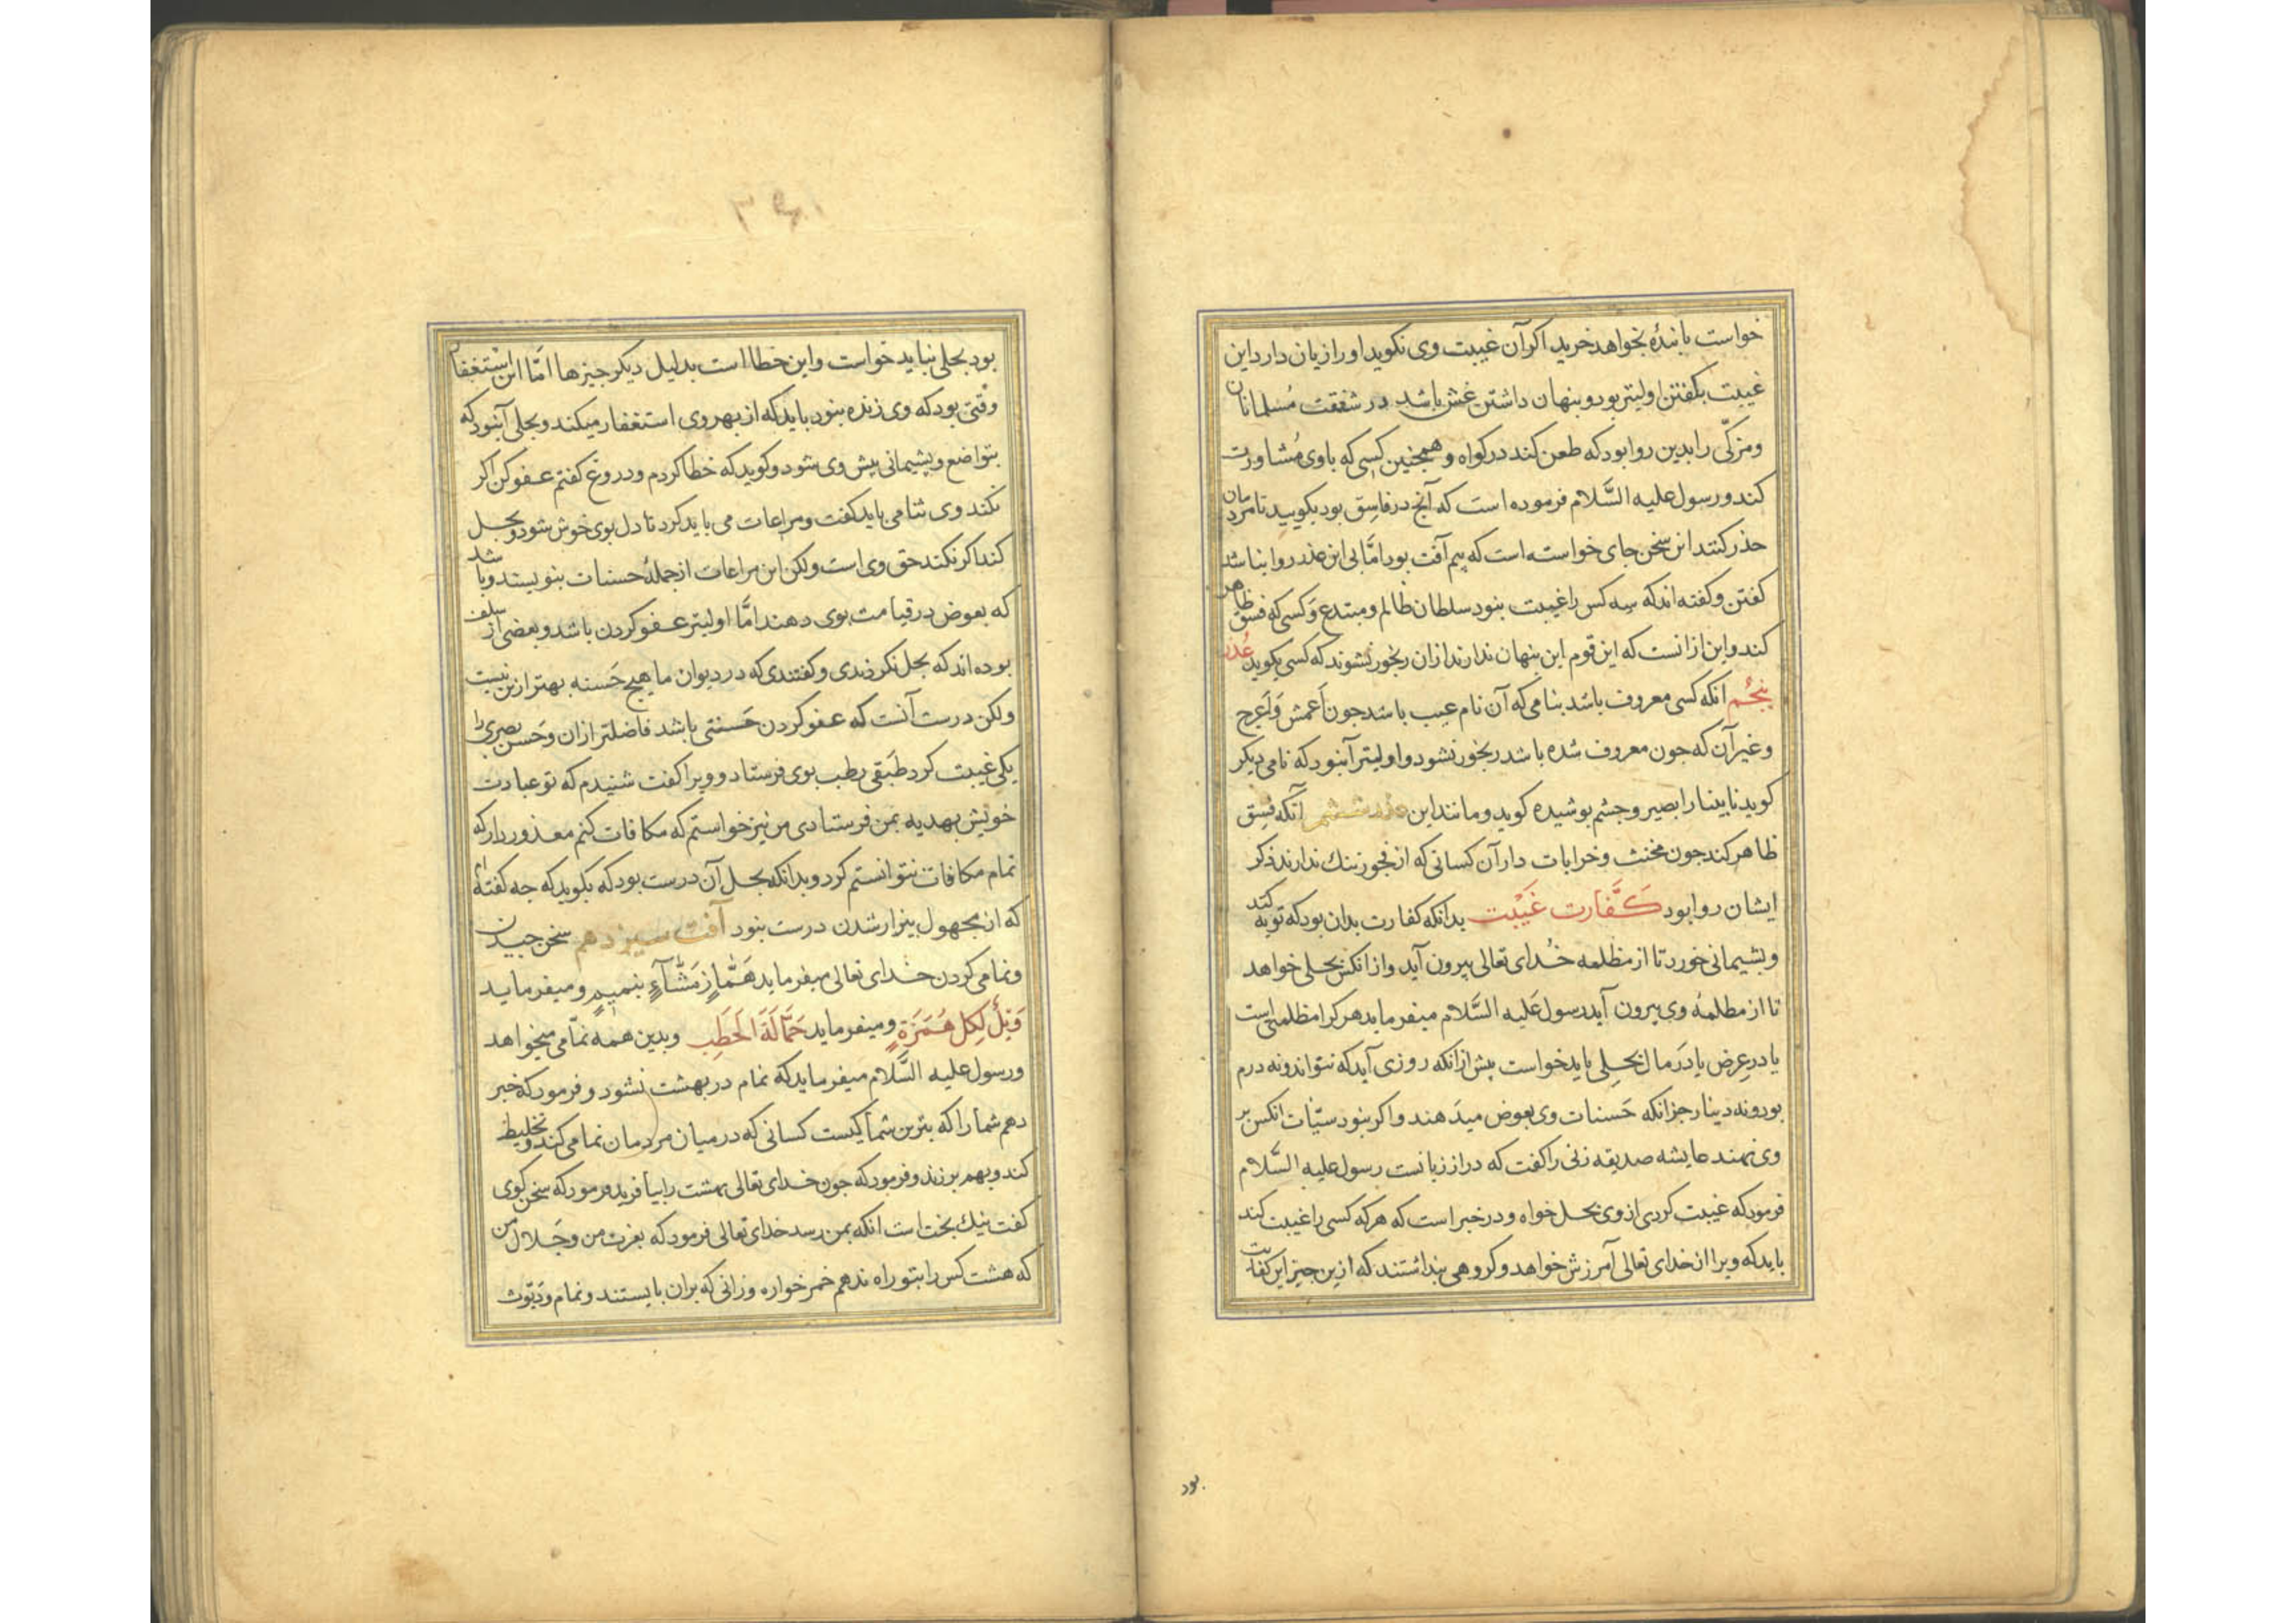 خواست یا بندهٔ بخواهد خرید اکر آن غیبت وی نکوید اورا زیان دارد این
غیبت بکفتن اولیتر بود و بنهان داشتن غش باشد در شفقت مسلمانان
و مزکّی را بدین روا بود که طعن کند در کواه و همچنین کسی که با وی مُشاورت
کند و رسول علیه السَّلام فرموده است که آنج در فاسِق بود بکویید تا مردمان
حذر کنند این سخن جای خواسته است که بیم آفت بود امّا بی این عذر روا نباشد
کفتن و کفته اند که سه کس را غیبت بنود سلطان ظالم و مبتدع وَکسی که فسق ظاهر
کند و این ازانست که این قوم این بنهان ندارند ازان رنجور نشوند که کسی بکوید عُذر
بنجُم انکه کسی معروف باشد بنامی که آن نام عیب باشد جون اَعمش وَاَعرج
و غیر آن که جون معروف شده باشد رنجور نشود و اولیتر آنبود که نامی دیکر
کوید نابینا را بصیر و جشم بوشیده کوید و مانند این عذر ششم آنکه فِسق
ظاهر کند جون مخنث و خرابات دار آن کسانی که از فجور ننك ندارند ذکر
ایشان روا بود کَفَّارت غَیْبت بدانکه کفارت بدان بود که توبه کند
و بشیمانی خورد تا از مظلمه خُدای تعالی بیرون آید و از انکس بحلی خواهد
تا از مظلمهٔ وی بیرون آید رسول عَلیه السَّلام میفرماید هر کرا مظلمتی است
یا در عِرض یا دَر مال بحِلی باید خواست بیش ازانکه روزی آید که نتواند و نه درم
بود و نه دینار جز انکه حَسنات وی بعوض میدَهند و اکر بنود سیّئات انکس بر
وی نهند عایشه صدیقه زنی را کفت که دراز زبانست رسول علیه السَّلام
فرمود که غیبت کردی از وی بحل خواه و در خبر است که هر که کسی را غیبت کند
باید که ویرا از خدای تعالی آمرزش خواهد و کروهی بنداشتند که ازین جیز این کفارت
بود
بود بحلی نباید خواست و این خطا است بدلیل دیکر جیزها امّا این اسْتغفار
وقتی بود که وی زنده بنود باید که از بهر وی استغفار میکند و بحلی آنبود که
بتواضع و بشیمانی بیش وی شود و کوید که خطا کردم و دروغ کفتم عفو کن اکر
نکند وی ثنا می باید کفت و مراعات می باید کرد تا دل بوی خوش شود و بحل
کند اکر نکند حق وی است ولکن این مراعات از جملهٔ حسنات بنویسند و باشد
که بعوض در قیامت بوی دهند امّا اولیتر عفو کردن باشد و بعضی از سلف
بوده اند که بحل نکردندی و کفتندی که در دیوان ما هیج حَسنه بهتر ازین نیست
ولکن درست آنست که عفو کردن حَسنتی باشد فاضلتر ازان و حَسن بصری را
یکی غیبت کرد طَبقی رطب بوی فرستاد و ویرا کفت شنیدم که تو عبادت
خویش بهدیه بمن فرستادی من نیز خواستم که مکافات کنم معذور دار که
تمام مکافات نتوانستم کرد و بدانکه بحل آن درست بود که بکوید که جه کفته ام
که از مجهول بیزار شدن درست بنود آفت سیزدهم سخن جیدن
و نمامی کردن خدای تعالی میفرماید هَمَّازٍ مَشَّآءٍ بنمیمٍ و میفرماید
وَیْلٌ لِکلِ هُمَزَةٍ و میفرماید حَمَّالَةَ الحَطَبِ و بدین همه نمّامی میخواهد
و رسول علیه السَّلام میفرماید که نمام در بهشت نشود و فرمود که خبر
دهم شما را که بترین شما کیست کسانی که در میان مردمان نمامی کند و تخلیط
کند و بهم برزند و فرمود که جون خدای تعالی بهشت را بیافرید فرمود که سخن کوی
کفت نیك بخت است انکه بمن رسد خدای تعالی فرمود که بعزت من و جَلال من
که هشت کس را بتو راه ندهم خمر خواره و زانی که بران بایستند و نمام و دَیّوث